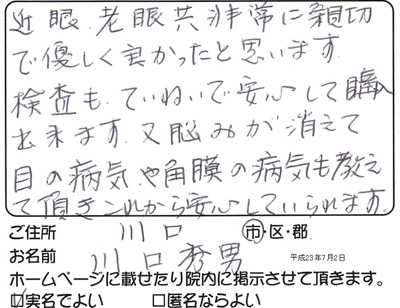 近眼、老眼共非常に親切
で優しく良かったと思います
検査も、ていねいで安心して購入
出来ます。又悩みが消えて
目の病気や角膜の病気も教え
て頂きこれから安心していられます。
ご住所 川口 市・区・郡
お名前 川口秀男 平成23年7月2日
ホームページに載せたり院内に掲示させて頂きます。
☑実名でよい □匿名ならよい